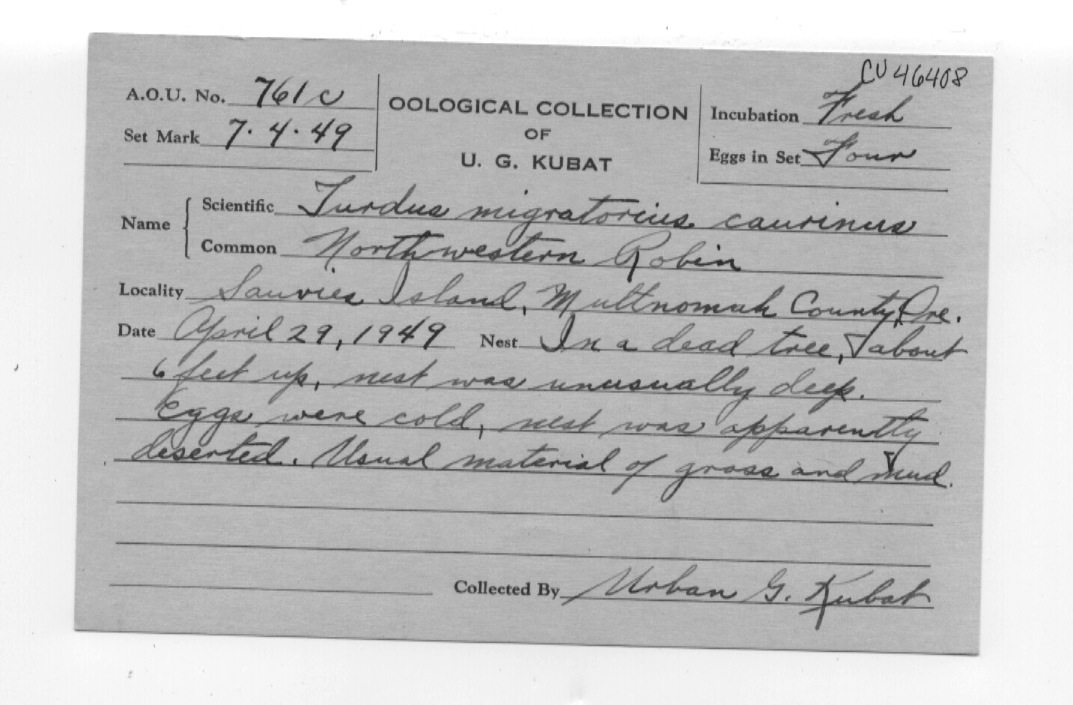 CU 46408
A.O.U. No. 761c
Set Mark 7·4·49
OOLOGICAL COLLECTION
OF
U. G. KUBAT
Incubation Fresh
Eggs in Set Four
Name
Scientific Turdus migratorius caurinus
Common Northwestern Robin
Locality Sauvies Island, Multnomah County, Ore.
Date April 29, 1949 Nest In a dead tree, about
6 feet up, nest was unusually deep.
Eggs were cold, nest was apparently
deserted. Usual material of grass and mud.
Collected By Urban G. Kubat